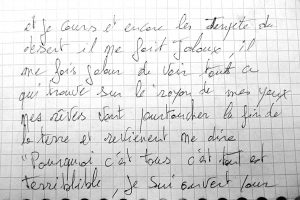 et je cours et encore les tempete du
desert il me fait Jaloux, il
me fais jaloux de voir tout ce
qu'trouve sur le rayon de mes yeux
mes rêves vont pour toucher la fin de
la terre et revienent me dire
"Pourquoi c'ét tous c'ét tout est
terriblible, Je sui ouvert pour